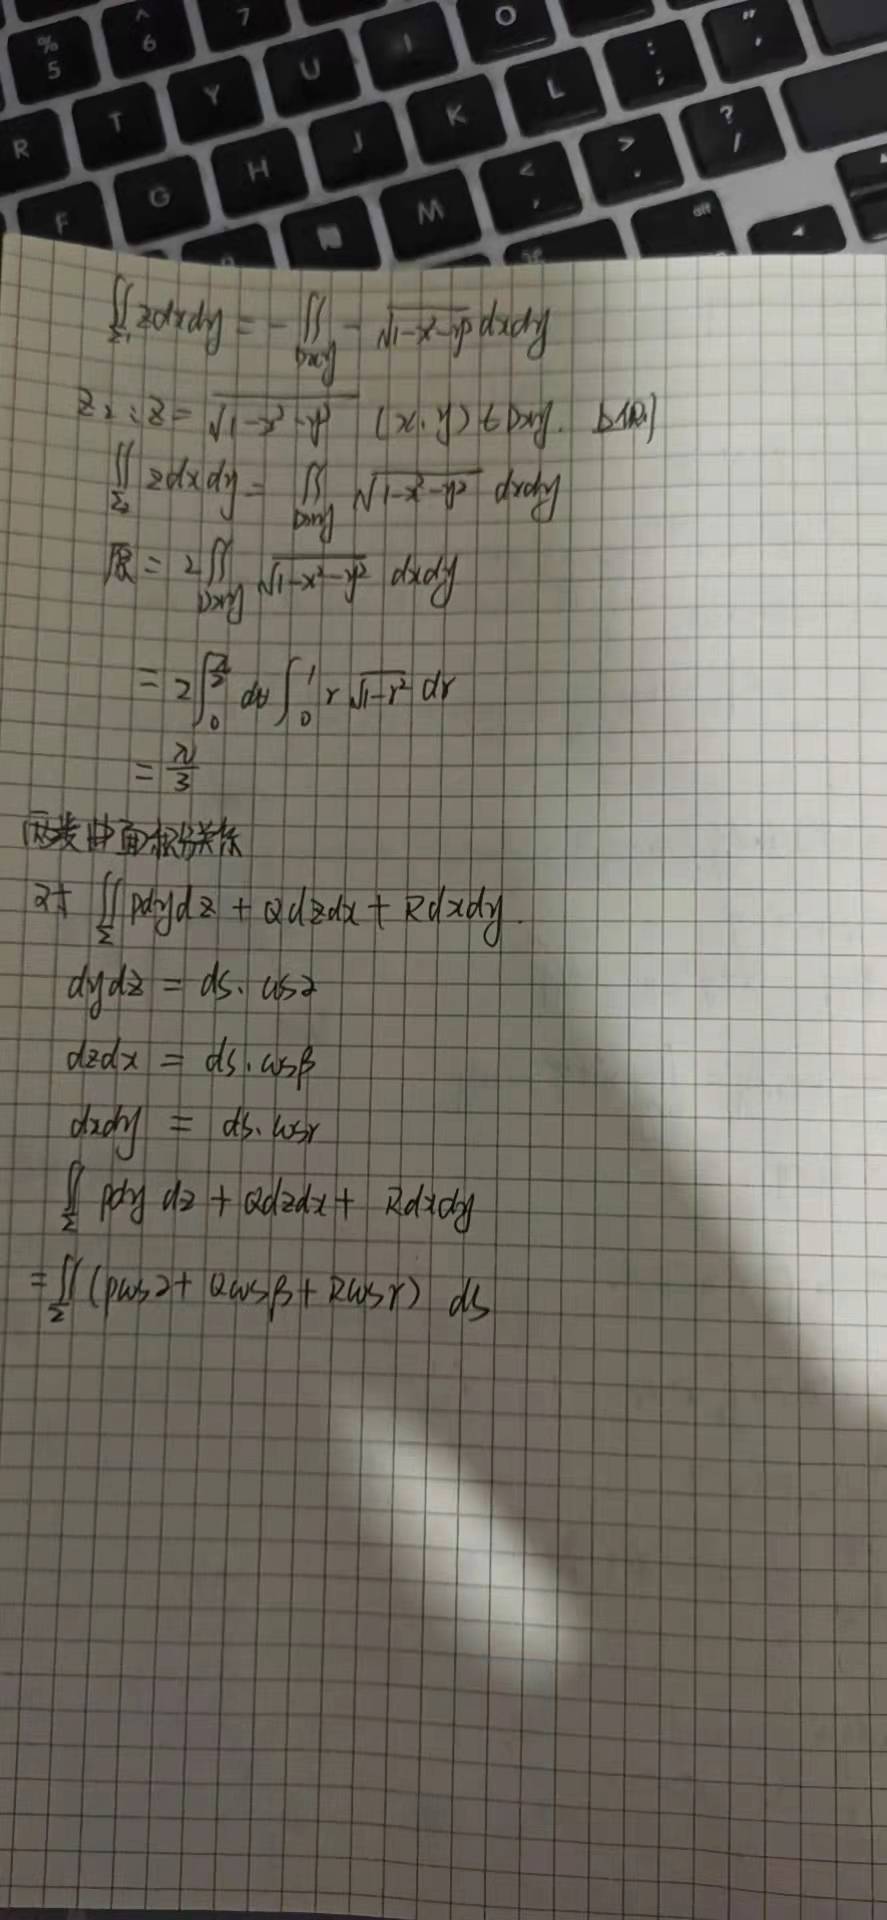 7 O
% 5 ^ 6
R T Y U I
F G H J K L : ; " '
M < , > . ? /
alt
∬Σ₁ zdxdy = -∬Dxy -√1-x²-y² dxdy
Σ₂: z = √1-x²-y² (x,y)∈Dxy.
∬Σ₂ zdxdy = ∬Dxy √1-x²-y² dxdy
原 = 2∬Dxy √1-x²-y² dxdy
= 2∫₀^(π/2) dθ ∫₀¹ r√1-r² dr
= π/3
两类曲面积分关系
对 ∬Σ Pdydz + Qdzdx + Rdxdy.
dydz = ds. cosα
dzdx = ds. cosβ
dxdy = ds. cosγ
∬Σ Pdydz + Qdzdx + Rdxdy
= ∬Σ (Pcosα + Qcosβ + Rcosγ) ds